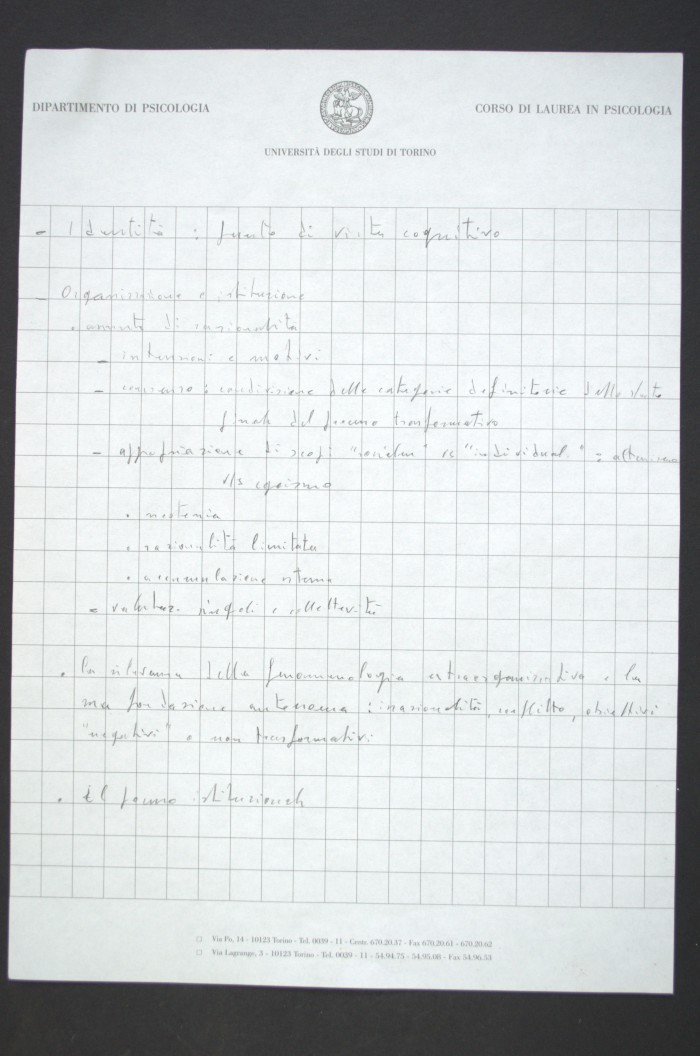 DIPARTIMENTO DI PSICOLOGIA
CORSO DI LAUREA IN PSICOLOGIA
UNIVERSITÀ DEGLI STUDI DI TORINO
- Identità : punto di vista cognitivo
- Organizzazione e istituzione
• assunto di razionalità
- intenzioni e motivi
- consenso : condivisione delle categorie definitorie dello stato
finale del processo trasformativo
- appropriazione di scopi "societari" vs "individual." :
v/s egoismo
•
• razionalità limitata
• accumulazione esterna
- valutaz. singoli e collettività
• la rilevanza della fenomenologia extraorganizzativa e la
sua fondazione autonoma : irrazionalità, conflitto, obiettivi
"negativi" o non trasformativi
• il processo istituzionale
Via Po, 14 - 10123 Torino - Tel. 0039 - 11 - Centr. 670.20.37 - Fax 670.20.61 - 670.20.62
Via Lagrange, 3 - 10123 Torino - Tel. 0039 - 11 - 54.94.75 - 54.95.08 - Fax 54.96.53